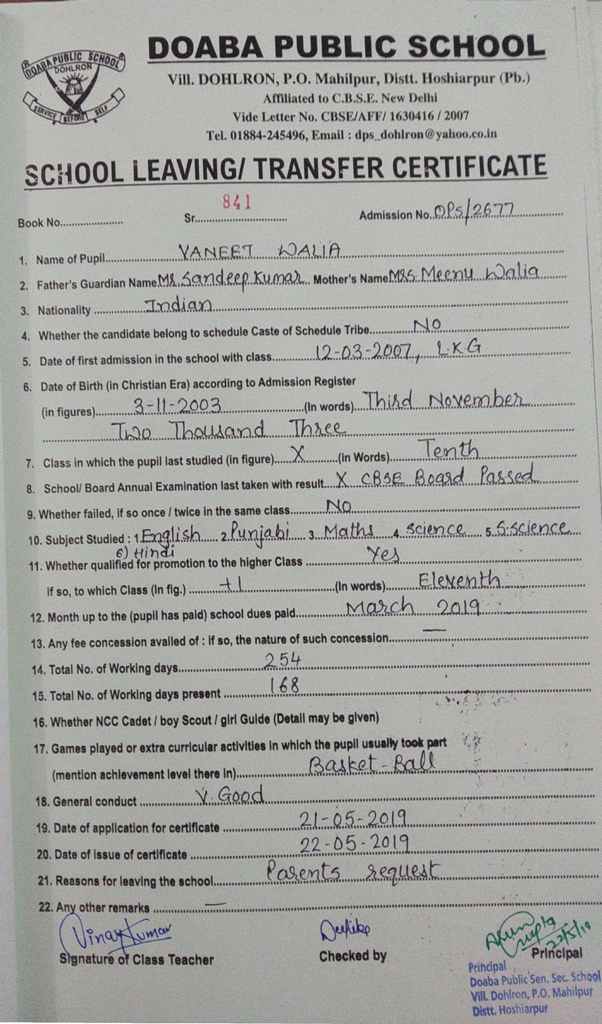 DOABA PUBLIC SCHOOL
DOHLRON
SERVICE BEFORE SELF
DOABA PUBLIC SCHOOL
Vill. DOHLRON, P.O. Mahilpur, Distt. Hoshiarpur (Pb.)
Affiliated to C.B.S.E. New Delhi
Vide Letter No. CBSE/AFF/ 1630416 / 2007
Tel. 01884-245496, Email : dps_dohlron@yahoo.co.in
SCHOOL LEAVING/ TRANSFER CERTIFICATE
Book No.................... Sr. 841 Admission No. DPS/2677
1. Name of Pupil VANEET WALIA
2. Father's Guardian Name Mr. Sandeep Kumar Mother's Name Mrs Meenu Walia
3. Nationality Indian
4. Whether the candidate belong to schedule Caste of Schedule Tribe NO
5. Date of first admission in the school with class 12-03-2007, LKG
6. Date of Birth (in Christian Era) according to Admission Register
(in figures) 3-11-2003 (In words) Third November
Two Thousand Three
7. Class in which the pupil last studied (in figure) X (in Words) Tenth
8. School/ Board Annual Examination last taken with result X CBSE Board Passed
9. Whether failed, if so once / twice in the same class No
10. Subject Studied : 1 English 2 Punjabi 3 Maths 4 Science 5 S.Science
6) Hindi
11. Whether qualified for promotion to the higher Class Yes
if so, to which Class (In fig.) +1 (In words) Eleventh
12. Month up to the (pupil has paid) school dues paid March 2019
13. Any fee concession availed of : if so, the nature of such concession —
14. Total No. of Working days 254
15. Total No. of Working days present 168
16. Whether NCC Cadet / boy Scout / girl Guide (Detail may be given)
17. Games played or extra curricular activities in which the pupil usually took part
(mention achievement level there in) Basket-Ball
18. General conduct V. Good
19. Date of application for certificate 21-05-2019
20. Date of issue of certificate 22-05-2019
21. Reasons for leaving the school Parents request
22. Any other remarks —
Vinay Kumar
Signature of Class Teacher
Checked by
Arun Gupta
22/5/19
Principal
Principal
Doaba Public Sen. Sec. School
Vill. Dohlron, P.O. Mahilpur
Distt. Hoshiarpur